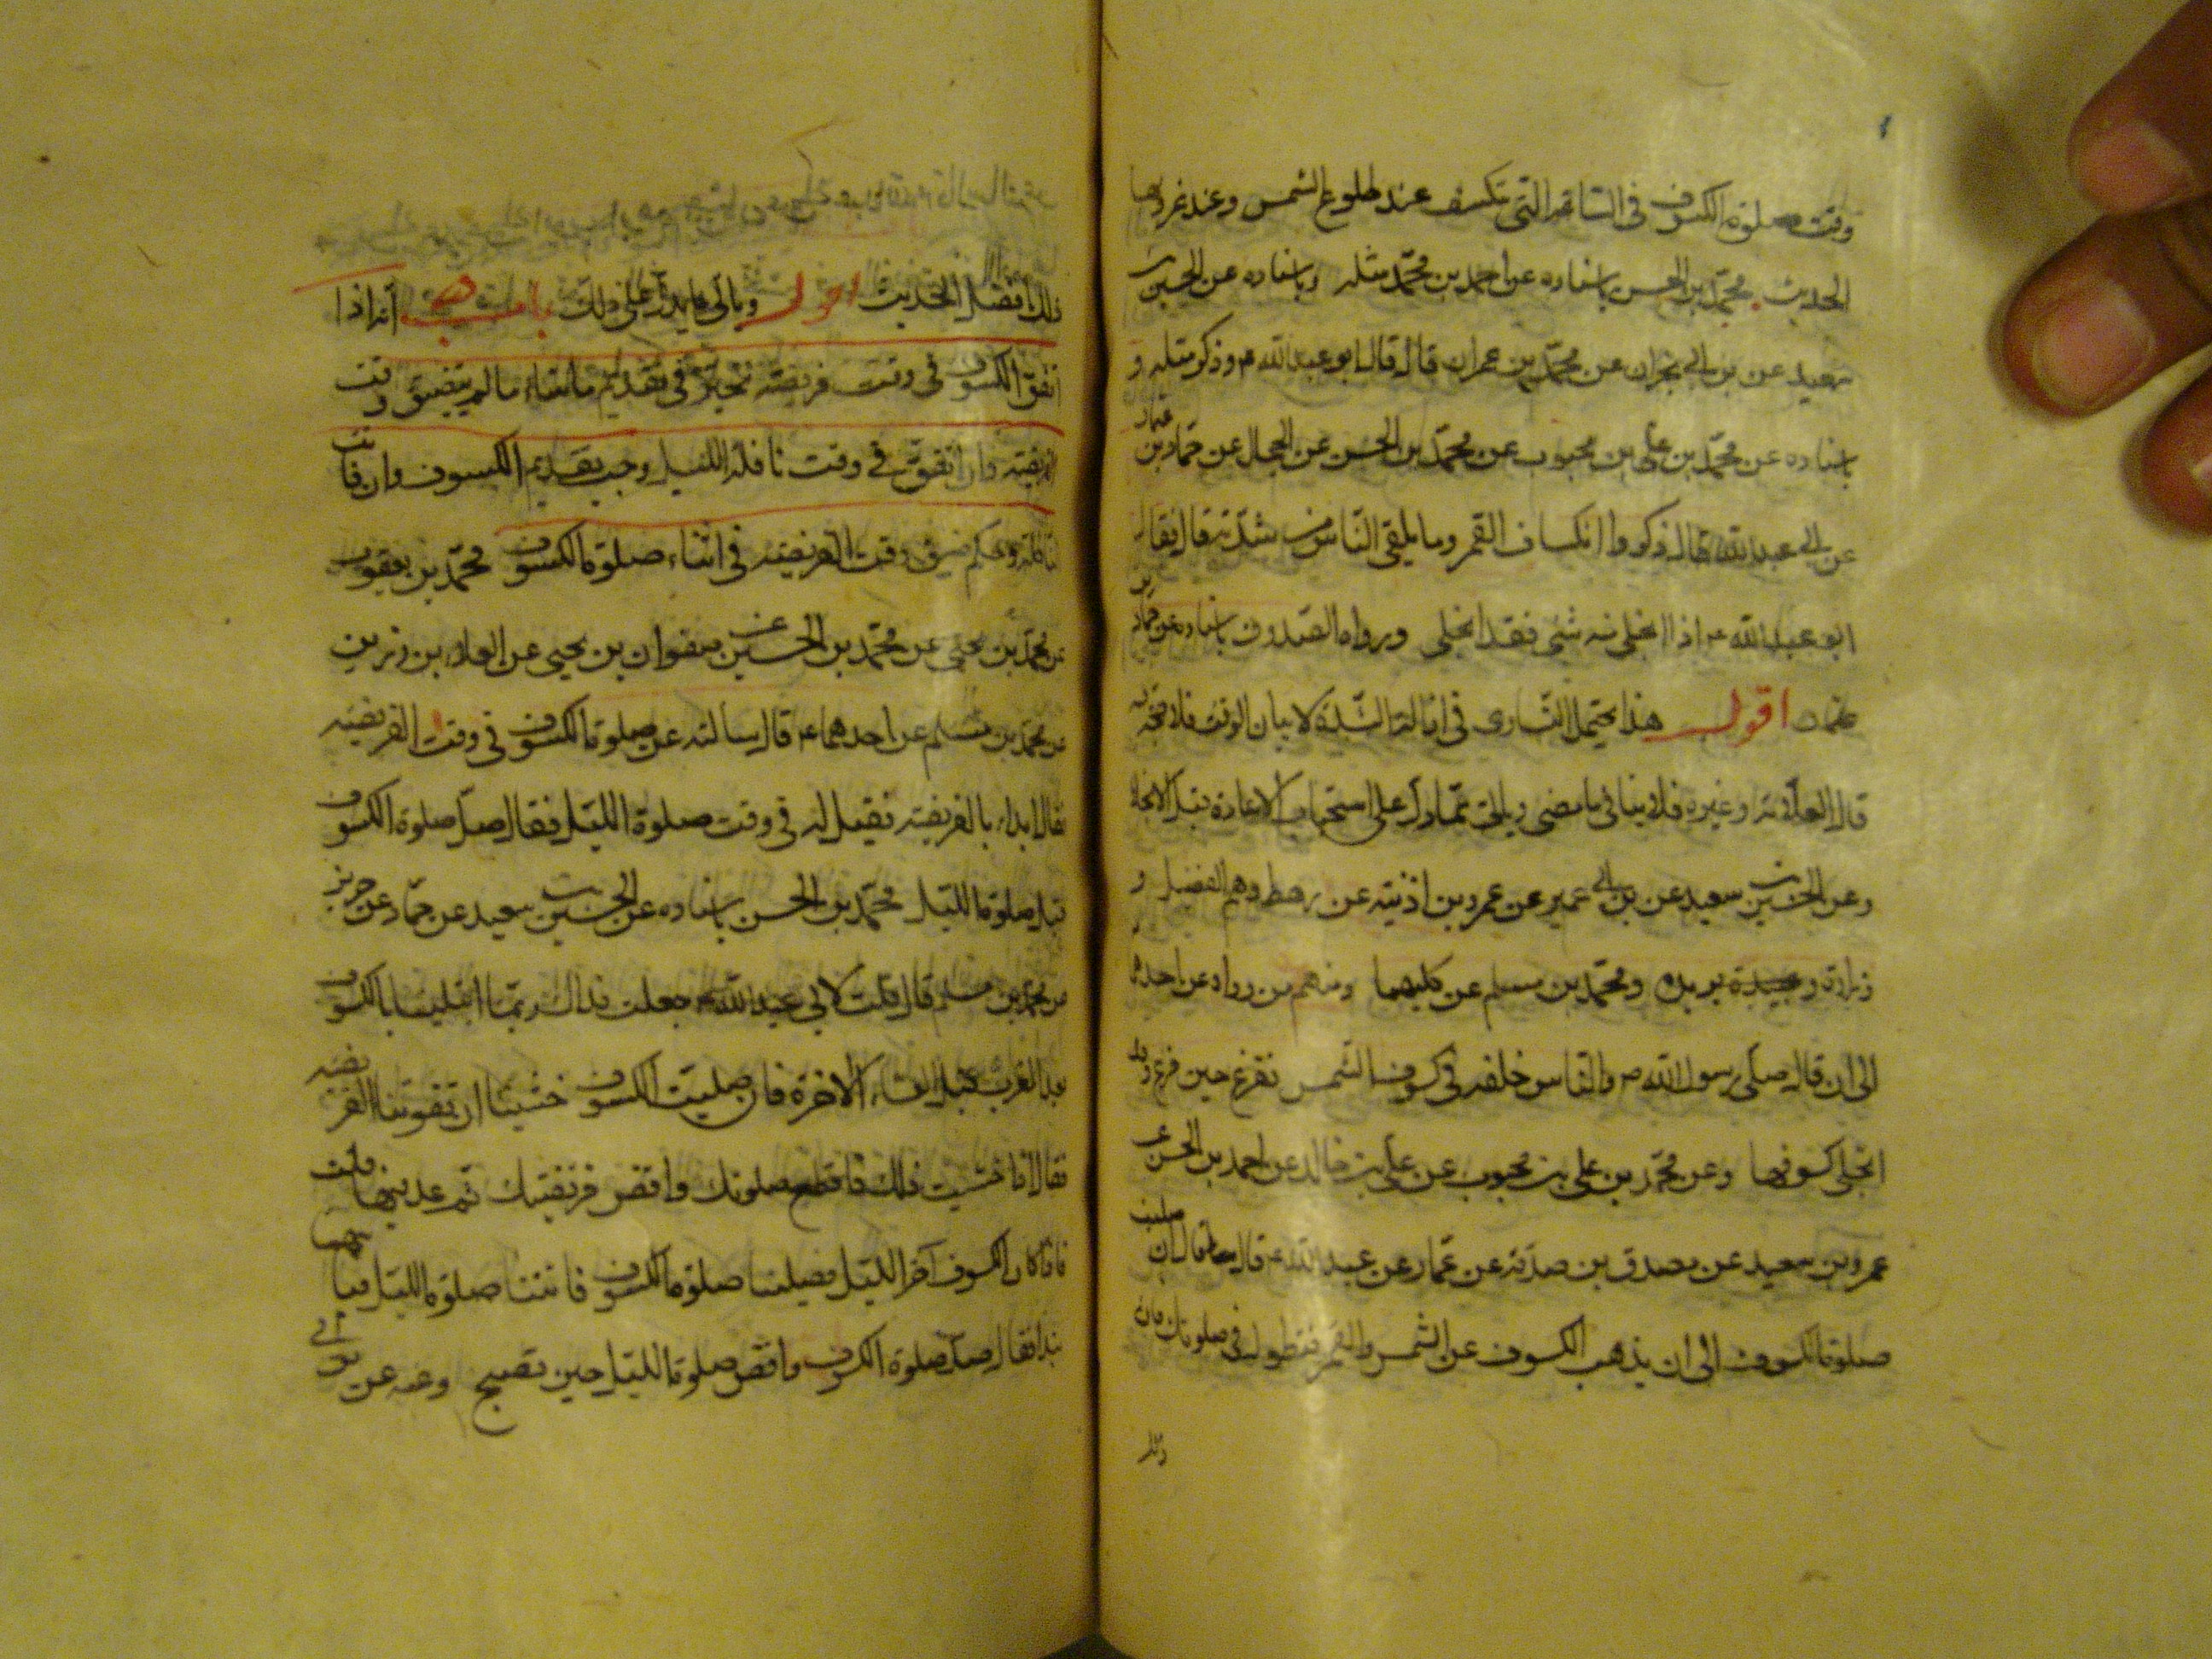 وقت صلوة الكسوف في الساعة التي تكسف عند طلوع الشمس وعند غروبها
الحديث محمد بن الحسن باسناده عن احمد بن محمد مثله وباسناده عن الحسين بن
سعيد عن بن ابي نجران عن محمد بن حمران قال قال ابو عبد الله ع وذكر مثله و
باسناده عن محمد بن علي بن محبوب عن محمد بن الحسن عن الحجال عن حماد بن عثمان
عن ابي عبد الله قال ذكروا انكساف القمر وما يلقى الناس من شدته قال فقال
ابو عبد الله ع اذا انجلى منه شئ فقد انجلى ورواه الصدوق باسناده عن حماد بن
عثمان اقول هذا يحتمل التساوي في ازالة الشدة لا بيان الوقت فلا حجة به
قاله العلامة وغيره فلا ينافي ما مضى وياتي مما دل على استحباب الاعادة قبل الانجلاء
وعن الحسين بن سعيد عن بن ابي عمير عن عمر بن اذنيه عن رهط وهم الفضيل و
زرارة و بريد ومحمد بن مسلم عن كليهما ومنهم من رواه عن احدهما
الى ان قال صلى رسول الله ص والناس خلفه في كسوف الشمس ففرغ حين فرغ وقد
انجلى كسوفها وعن محمد بن علي بن محبوب عن علي بن خالد عن احمد بن الحسن عن
عمرو بن سعيد عن مصدق بن صدقة عن عمار عن عبد الله ع قال قال ان صليت
صلوة الكسوف الى ان يذهب الكسوف عن الشمس والقمر فتطول في صلوتك فان
ذلك
ذلك افضل الحديث اقول وياتي ما يدل على ذلك باب انه اذا
اتفق الكسوف في وقت فريضه تخير في تقديم ما شاء ما لم يتضيق وقت
الفريضه وان اتفق في وقت نافلة الليل وجب تقديم الكسوف وان فاتت
النافلة وحكم ضيق وقت الفريضه في اثناء صلوة الكسوف محمد بن يعقوب
عن محمد بن يحيى عن محمد بن الحسين عن صفوان بن يحيى عن العلاء بن رزين
عن محمد بن مسلم عن احدهما ع قال سالته عن صلوة الكسوف في وقت الفريضه
فقال ابداء بالفريضه فقيل له في وقت صلوة الليل فقال صل صلوة الكسوف
قبل صلوة الليل محمد بن الحسن باسناده عن الحسين بن سعيد عن حماد عن حريز
عن محمد بن مسلم قال قلت لابي عبد الله ع جعلت فداك ربما ابتلينا بالكسوف
بعد المغرب قبل العشاء الاخرة فان صليت الكسوف خشينا ان تفوتنا الفريضه
فقال اذا خشيت ذلك فاقطع صلوتك واقض فريضتك ثم عد فيها قلت
فاذا كان الكسوف آخر الليل فصلينا صلوة الكسوف فاتتنا صلوة الليل فبايتهما
نبدا فقال صل صلوة الكسوف واقض صلوة الليل حين تصبح وعنه عن